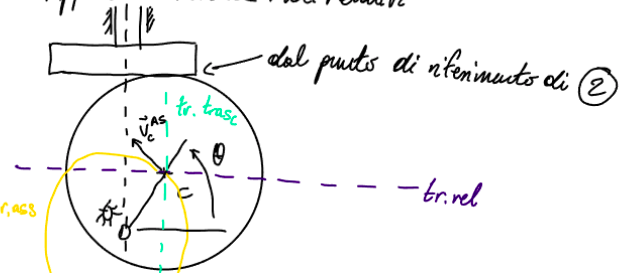 dal punto di riferimento di 2
tr. trasc
V_C^AS
θ
C
tr.rel
r.ass
O